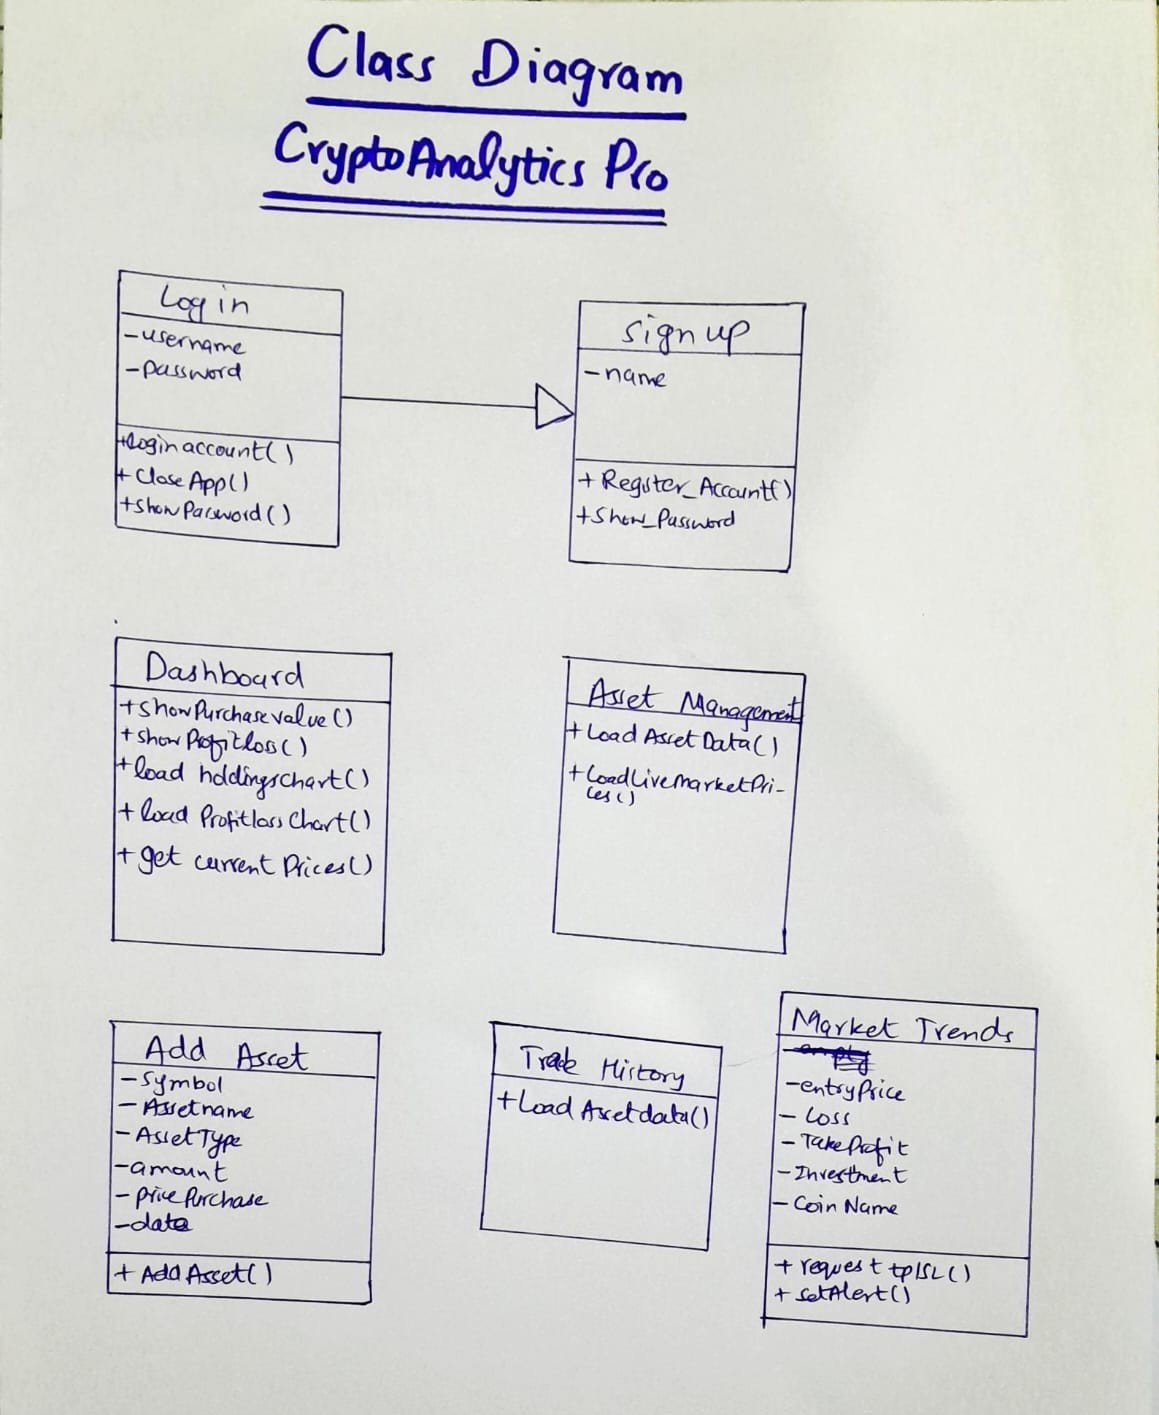 Class Diagram
CryptoAnalytics Pro
Login
-username
-password
+Loginaccount()
+CloseApp()
+showPassword()
Signup
-name
+Register_Account()
+Show_Password
Dashboard
+showPurchasevalue()
+showProfitloss()
+load holdingschart()
+load Profitloss Chart()
+get current Prices()
Asset Management
+LoadAssetData()
+LoadLiveMarketPri-
ces()
Add Asset
-Symbol
-Assetname
-AssetType
-amount
-pricePurchase
-date
+AddAsset()
Trade History
+Load Assetdata()
Market Trends
-entryPrice
-Loss
-TakeProfit
-Investment
-Coin Name
+request tp/SL()
+setAlert()